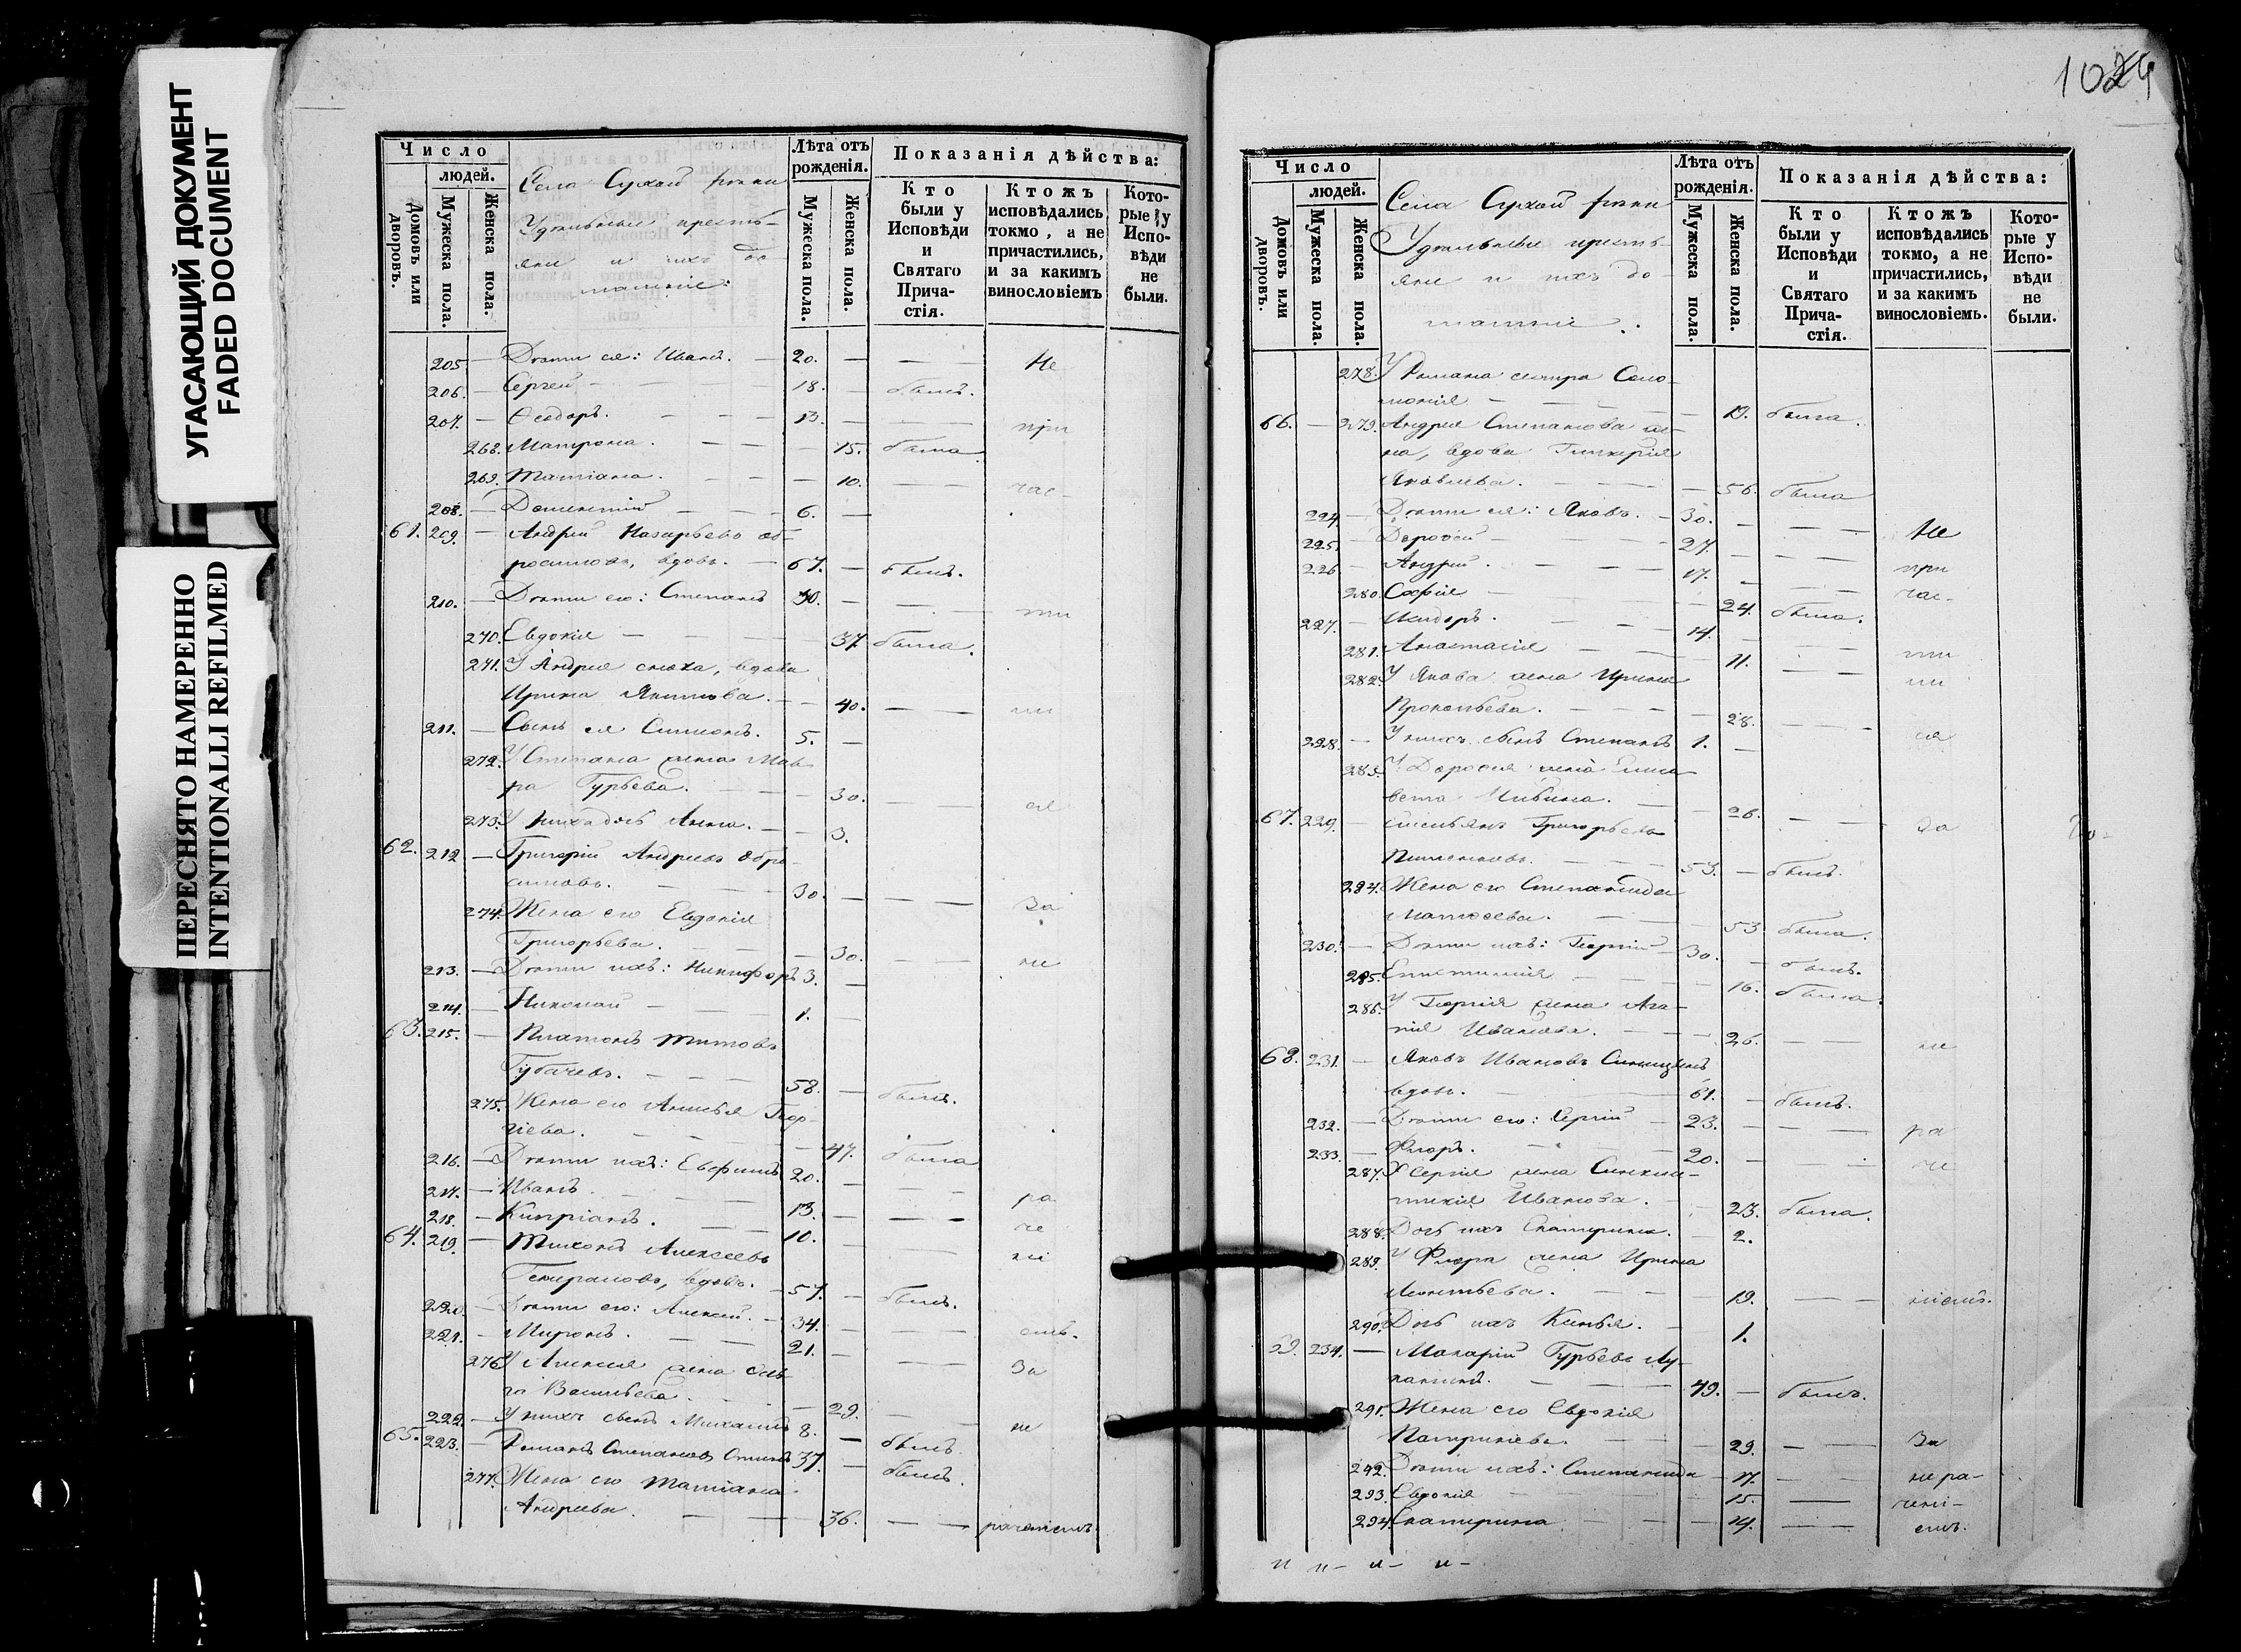 УГАСАЮЩИЙ ДОКУМЕНТ
FADED DOCUMENT
ПЕРЕСНЯТО НАМЕРЕННО
INTENTIONALLI REFILMED
Число
людей.
Домовъ или дворовъ.
Мужеска пола.
Женска пола.
Села Сухой
Удѣльные кресть-
яне и ихъ до-
машніе:
Лѣта отъ рожденія.
Мужеска пола.
Женска пола.
Показанія дѣйства:
Кто были у Исповѣди и Святаго Прича-стія.
Ктожъ исповѣдались токмо, а не причастились, и за какимъ винословіемъ
Кото-рые у Испо-вѣди не были.
205 — Дѣти ея: Иванъ. — 20. — — Не
206. — Сергей — 18. — былъ.
207. — Ѳеодоръ. — 13. — — при
268. Матрона. — 15. была
269. Татіана. — 10. — час-
208. — Дометій — 6. —
61. 209. — Андрей Назарьевъ
вдовъ. — 67. — былъ.
210. — Дѣти его: Степанъ 30. — — ти
270. Евдокія — 37. была.
271. У Андрея сноха, вдова
Ирина Якимова. — 40. —
211. — Сынъ ея Симеонъ. 5. —
272. У Степана жена Мав-
ра Гурьева. — 30. — ся
273. У нихъ дочь Анна. — 3.
62. 212 — Григорій Андреевъ Абро-
симовъ. — 30. — — За
274. Жена его Евдокія
Григорьева. — 30. — не
213. — Дѣти ихъ: Никифоръ 3. —
214. — Николай — 1. —
63. 215. — Платонъ Титовъ
Губачевъ. — 58. — былъ.
275. Жена его Анисья Геор-
гіева. — 47. была
216. — Дѣти ихъ: Евфимъ 20. —
217. — Иванъ. — 13. — ра
218. — Кипріанъ. — 10. — че
64. 219. — Тихонъ Алексеевъ
вдовъ. — 57. — былъ.
220. — Дѣти его: Алексей. — 34. —
221. — Миронъ. — 21. — емъ.
276. У Алексея жена Оль-
га Васильева. — 29. — За
222. — У нихъ сынъ Михаилъ 8. — не
65. 223. — Романъ Степановъ 37. — былъ
277. Жена его Татіана
Андреева. — 36. — раченіемъ.
1024
Число
людей.
Домовъ или дворовъ.
Мужеска пола.
Женска пола.
Села Сухой
Удѣльные кресть-
яне и ихъ до-
машніе:
Лѣта отъ рожденія.
Мужеска пола.
Женска пола.
Показанія дѣйства:
Кто были у Исповѣди и Святаго Прича-стія.
Ктожъ исповѣдались токмо, а не причастились, и за какимъ винословіемъ.
Кото-рые у Испо-вѣди не были.
278. У Романа сестра Соло-
монія — 19. была.
66. — 279. Андрея Степанова же-
на, вдова Гликерія
Яковлева. — 56. была
224. — Дѣти ея: Яковъ. — 30. — Не
225. — Дороѳей — 27. —
226. — Андрей. — 17. — при
280. Софія — 24. была. час-
227. — Исидоръ. — 14. —
281. Анастасія — 11. — ти
282. У Якова жена Ирина
Прокопьева. — 28. —
228. — У нихъ сынъ Степанъ 1. — ся
283. У Дороѳея жена Елиса-
вета — 26. — За
67. 229. — Емельянъ Григорьевъ
53. — былъ.
284. Жена его Степанида
Матѳеева. — 53 была.
230. — Дѣти ихъ: Георгій — 30. — былъ.
285. — 16. была.
286. У Георгія жена Ага-
пія Иванова. — 26. — не
68. 231. — Яковъ Ивановъ Синицынъ
вдовъ. — 61. — былъ.
232. — Дѣти его: Сергій — 23. — ра
233. — Флоръ. — 20. — че
287. У Сергія жена Синкли-
тикія Иванова. — 23. была.
288. Дочь ихъ Екатерина. — 2.
289. У Флора жена Ирина
Леонтьева. — 19. — ніемъ.
290. Дочь ихъ — 1.
69. 234. — Макарій Гурьевъ Лу-
49. — былъ.
291. Жена его Евдокія
Патрикіева. — 29. — За
292. Дѣти ихъ: Степанида — 17. — нера-
293. Евдокія — 15. — чені-
294. Екатерина — 14. — емъ.